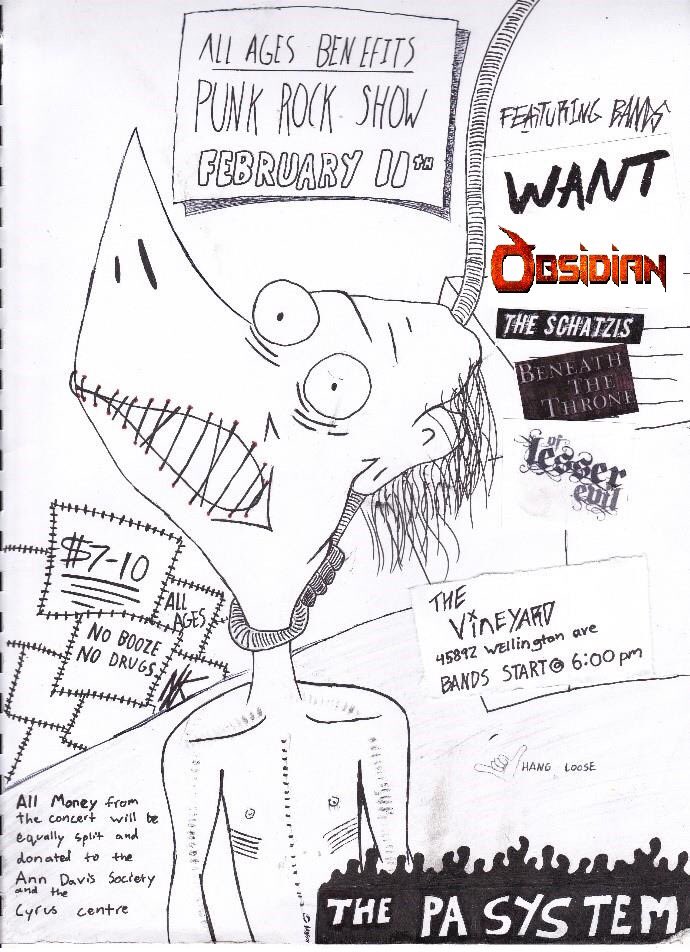 ALL AGES BENEFITS
PUNK ROCK SHOW
FEBRUARY 11TH
FEATURING BANDS
WANT
OBSIDIAN
THE SCHATZIS
BENEATH
THE
THRONE
of
lesser
evil
$7-10
ALL
AGES
NO BOOZE
NO DRUGS
NK
THE
ViNEYARD
45892 WEllington ave
BANDS START@ 6:00 pm
HANG LOOSE
All Money from
the concert will be
equally split and
donated to the
Ann Davis Society
and the
Cyrus centre
THE PA SYSTEM